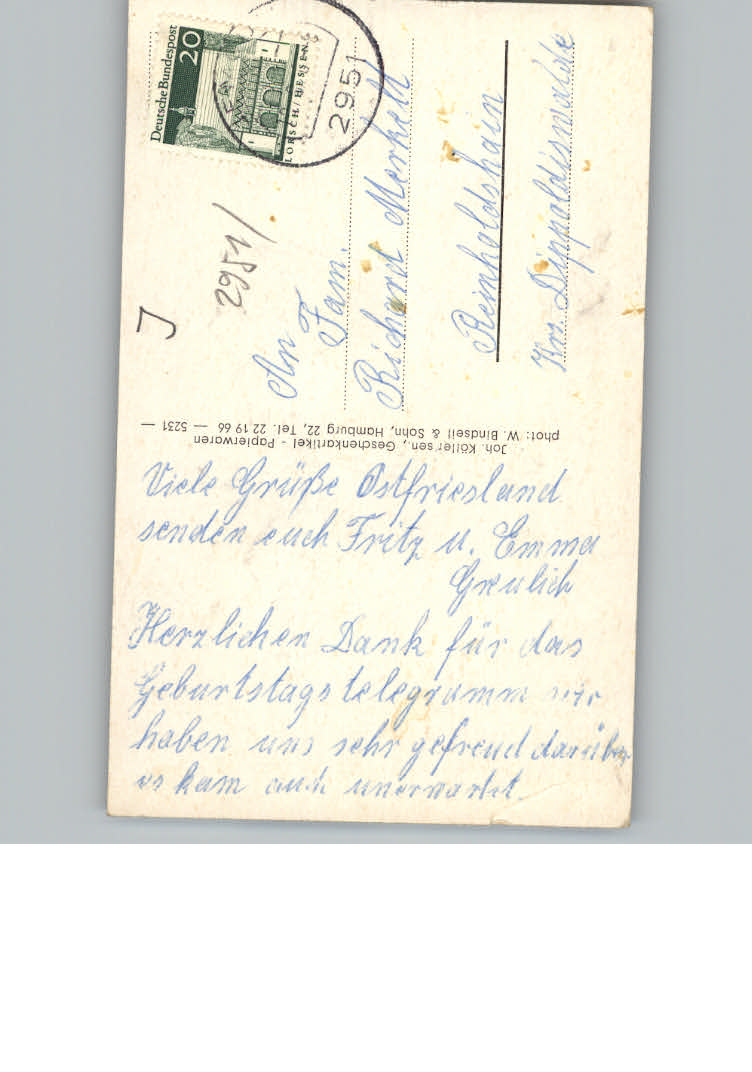 Deutsche Bundespost
20
LORSCH/HESSEN
2951
2951/
J
An
Fam.
Richard Merkelt
Reinholdshain
Krs. Dippoldiswalde
Joh. Köllersen, Geschenkartikel - Papierwaren
phot: W. Bindseil & Sohn, Hamburg 22, Tel. 22 19 66 — 5231 —
Viele Grüße Ostfriesland
senden euch Fritz u. Emma
Greulich
Herzlichen Dank für das
Geburtstagstelegramm wir
haben uns sehr gefreud darüber
es kam auch unerwartet